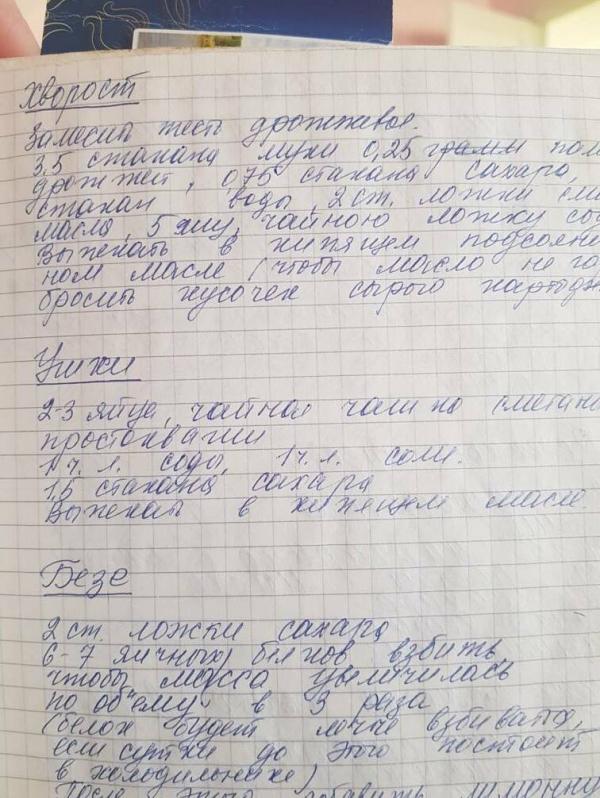 Хворост
Замесить тесто дрожжевое.
3,5 стакана муки 0,25 грамм
дрожжей, 0,75 стакана сахара,
стакан воды, 2 ст. ложки
масла, 5 яиц, чайную ложку
Выпекать в кипящем подсолнеч
ном масле (чтобы масло не го
бросить кусочек сырого картоф
Ушки
2-3 яйца, чайная чашка сметаны
простокваши
1 ч. л. соды, 1 ч. л. соли.
1,5 стакана сахара
Выпекать в кипящем масле.
Безе
2 ст. ложки сахара
6-7 яичных белков взбить,
чтобы масса увеличилась
по объему в 3 раза
(белок будет лучше взбиваться,
если сутки до этого постоит
в холодильнике)
После этого добавить